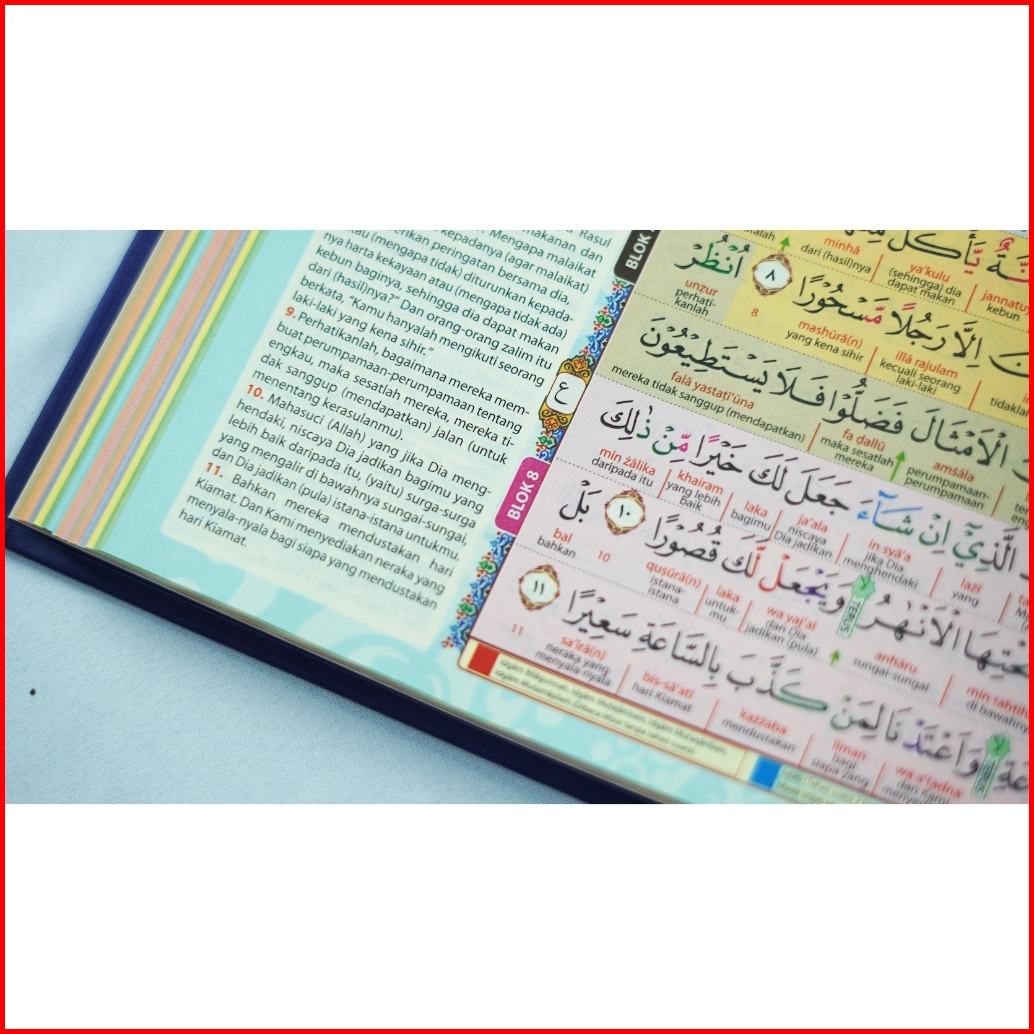 Rasul
makanan dan
Mengapa malaikat
kepadanya (agar malaikat)
erikan peringatan bersama dia,
au (mengapa tidak) diturunkan kepada-
nya harta kekayaan atau (mengapa tidak ada)
kebun baginya, sehingga dia dapat makan
dari (hasil)nya?" Dan orang-orang zalim itu
berkata, "Kamu hanyalah mengikuti seorang
laki-laki yang kena sihir."
9. Perhatikanlah, bagaimana mereka mem-
buat perumpamaan-perumpamaan tentang
engkau, maka sesatlah mereka, mereka ti-
dak sanggup (mendapatkan) jalan (untuk
menentang kerasulanmu).
10. Mahasuci (Allah) yang jika Dia meng-
hendaki, niscaya Dia jadikan bagimu yang
lebih baik daripada itu, (yaitu) surga-surga
yang mengalir di bawahnya sungai-sungai,
dan Dia jadikan (pula) istana-istana untukmu.
11. Bahkan mereka mendustakan hari
Kiamat. Dan Kami menyediakan neraka yang
menyala-nyala bagi siapa yang mendustakan
hari Kiamat.
BLOK
ع
BLOK 8
يَّأْكُلُ مِنْهَا
minhā ya'kulu jannatu
dari (hasil)nya (sehingga) dia dapat makan kebun
اِلَّا رَجُلًا مَّسْحُوْرًا ٨ اُنْظُرْ
illā rajulam masḥūrā(n) 8 unẓur
kecuali seorang laki-laki yang kena sihir perhati-kanlah
الْاَمْثَالَ فَضَلُّوْا فَلَا يَسْتَطِيْعُوْنَ
amṡāla fa ḍallū falā yastaṭī'ūna
perumpamaan-perumpamaan maka sesatlah mereka mereka tidak sanggup (mendapatkan)
الَّذِيْٓ اِنْ شَاۤءَ جَعَلَ لَكَ خَيْرًا مِّنْ ذٰلِكَ
lażī in syā'a ja'ala laka khairam min żālika
yang jika Dia menghendaki niscaya Dia jadikan bagimu yang lebih baik daripada itu
الْاَنْهٰرُ وَيَجْعَلْ لَّكَ قُصُوْرًا ١٠ بَلْ
TERUS
min taḥtih anhāru wa yaj'al laka quṣūrā(n) 10 bal
di bawahny sungai-sungai dan Dia jadikan (pula) untuk-mu istana-istana bahkan
وَاَعْتَدْنَا لِمَنْ كَذَّبَ بِالسَّاعَةِ سَعِيْرًا ١١
TERUS
wa a'tadnā liman każżaba bis-sā'ati sa'īrā(n) 11
dan Kami bagi siapa yang mendustakan hari Kiamat neraka yang menyala-nyala